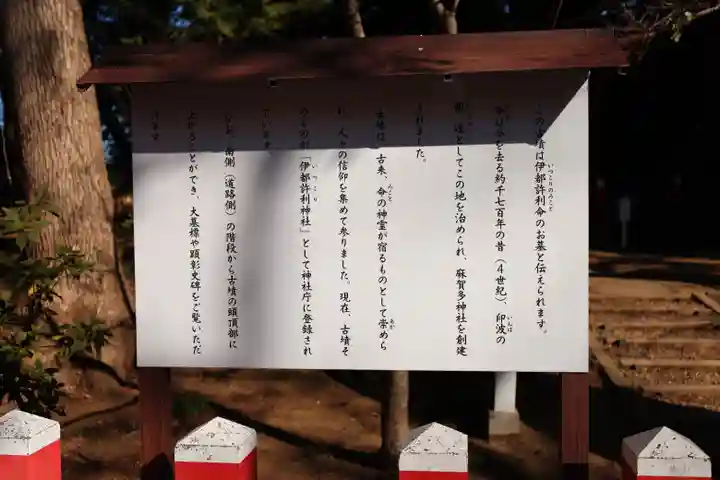 この古墳は伊都許利命のお墓と伝えられます。
いつこりのみこと
命は今を去る約千七百年の昔（４世紀）、印波の
いんば
国造としてこの地を治められ、麻賀多神社を創建
されました。
古墳は、古来、命の神霊が宿るものとして崇めら
みこと
あが
れ、人々の信仰を集めて参りました。現在、古墳そ
のものが「伊都許利神社」として神社庁に登録され
いつこり
ています。
なお、南側（道路側）の階段から古墳の頭頂部に
上がることができ、大墓標や顕彰史碑をご覧いただ
けます